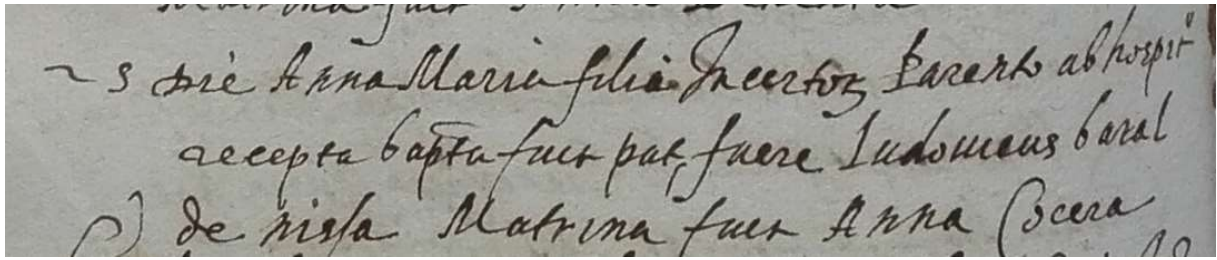 5 die Anna Maria filia Incertoꝝ Parento ab hospit
recepta bapta fuit pat, fuere Ludovicus baral
de nissa Matrina fuit Anna Cocera